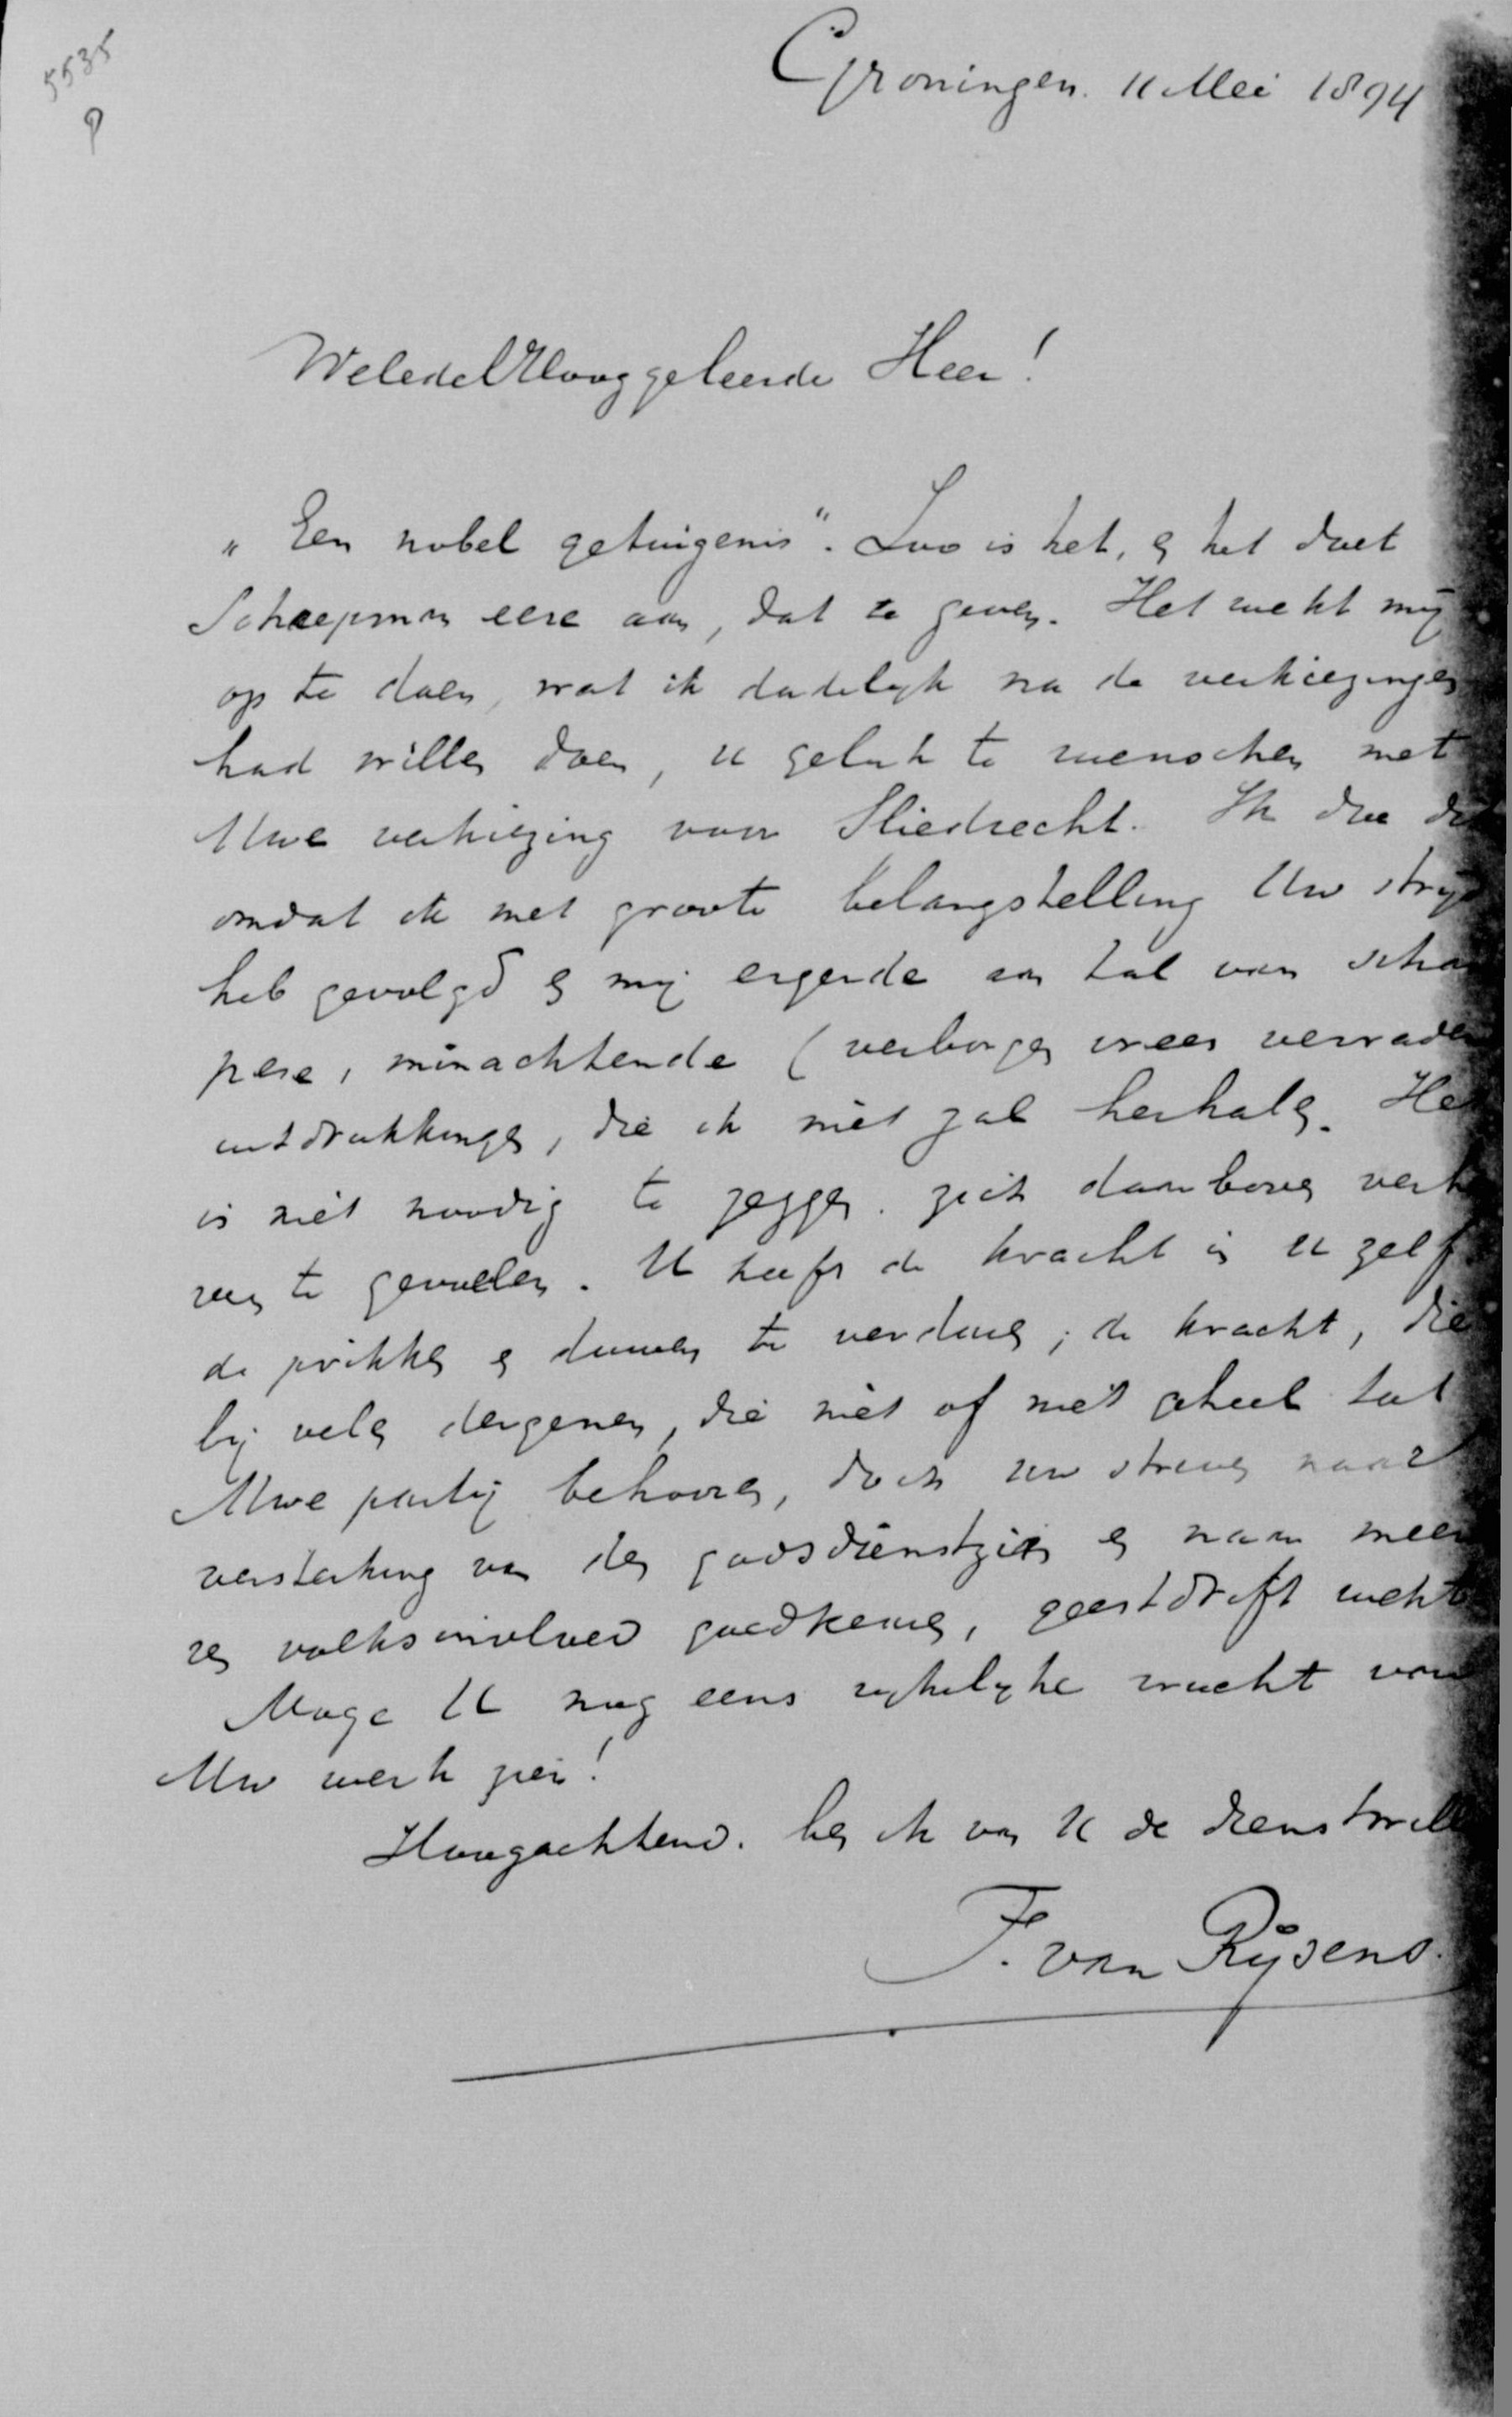 5535
P
Groningen. 11 Mei 1894
WeledelHooggeleerde Heer!
„Een nobel getuigenis". Zoo is het, en het doet
Schaepman eere aan, dat te geven. Het wekt mij
op te doen, wat ik dadelijk na de verkiezingen
had willen doen, U geluk te wenschen met
Uwe verkiezing voor Sliedrecht. Ik doe dit
omdat ik met groote belangstelling Uw strijd
heb gevolgd en mij ergerde aan tal van scha
pere, minachtende (verborgen vrees verraden
uitdrukkingen, die ik niet zal herhalen. Het
is niet noodig te zeggen. zich daarboven verhe
ven te gevoelen. U heeft de kracht in U zelf
de prikken en duwen te verduren; de kracht, die
bij velen dergenen, die niet of niet geheel tot
Uwe partij behooren, doch uw streven naar
versterking van den godsdienstzin en naar meer
volksinvloed goedkeuren, geestdrift wekt
Moge U nog eens rijkelijke vrucht van
Uw werk zien!
Hoogachtend. ben ik van U de dienstwill
F. van Rijsens.